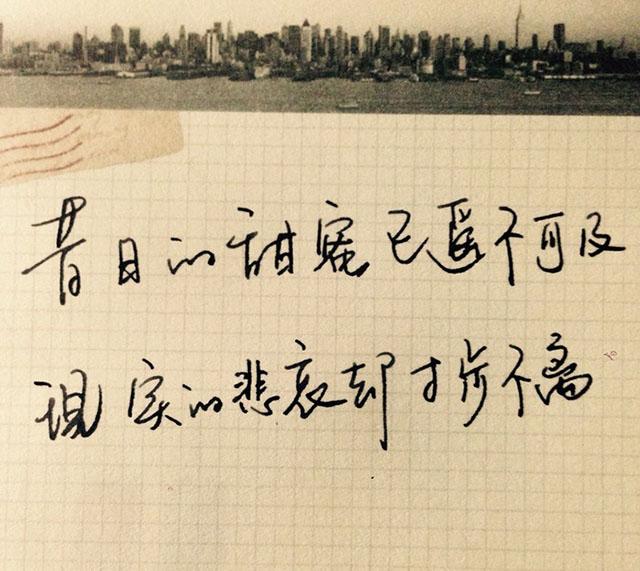 昔日的甜蜜已遥不可及
现实的悲哀却寸步不离